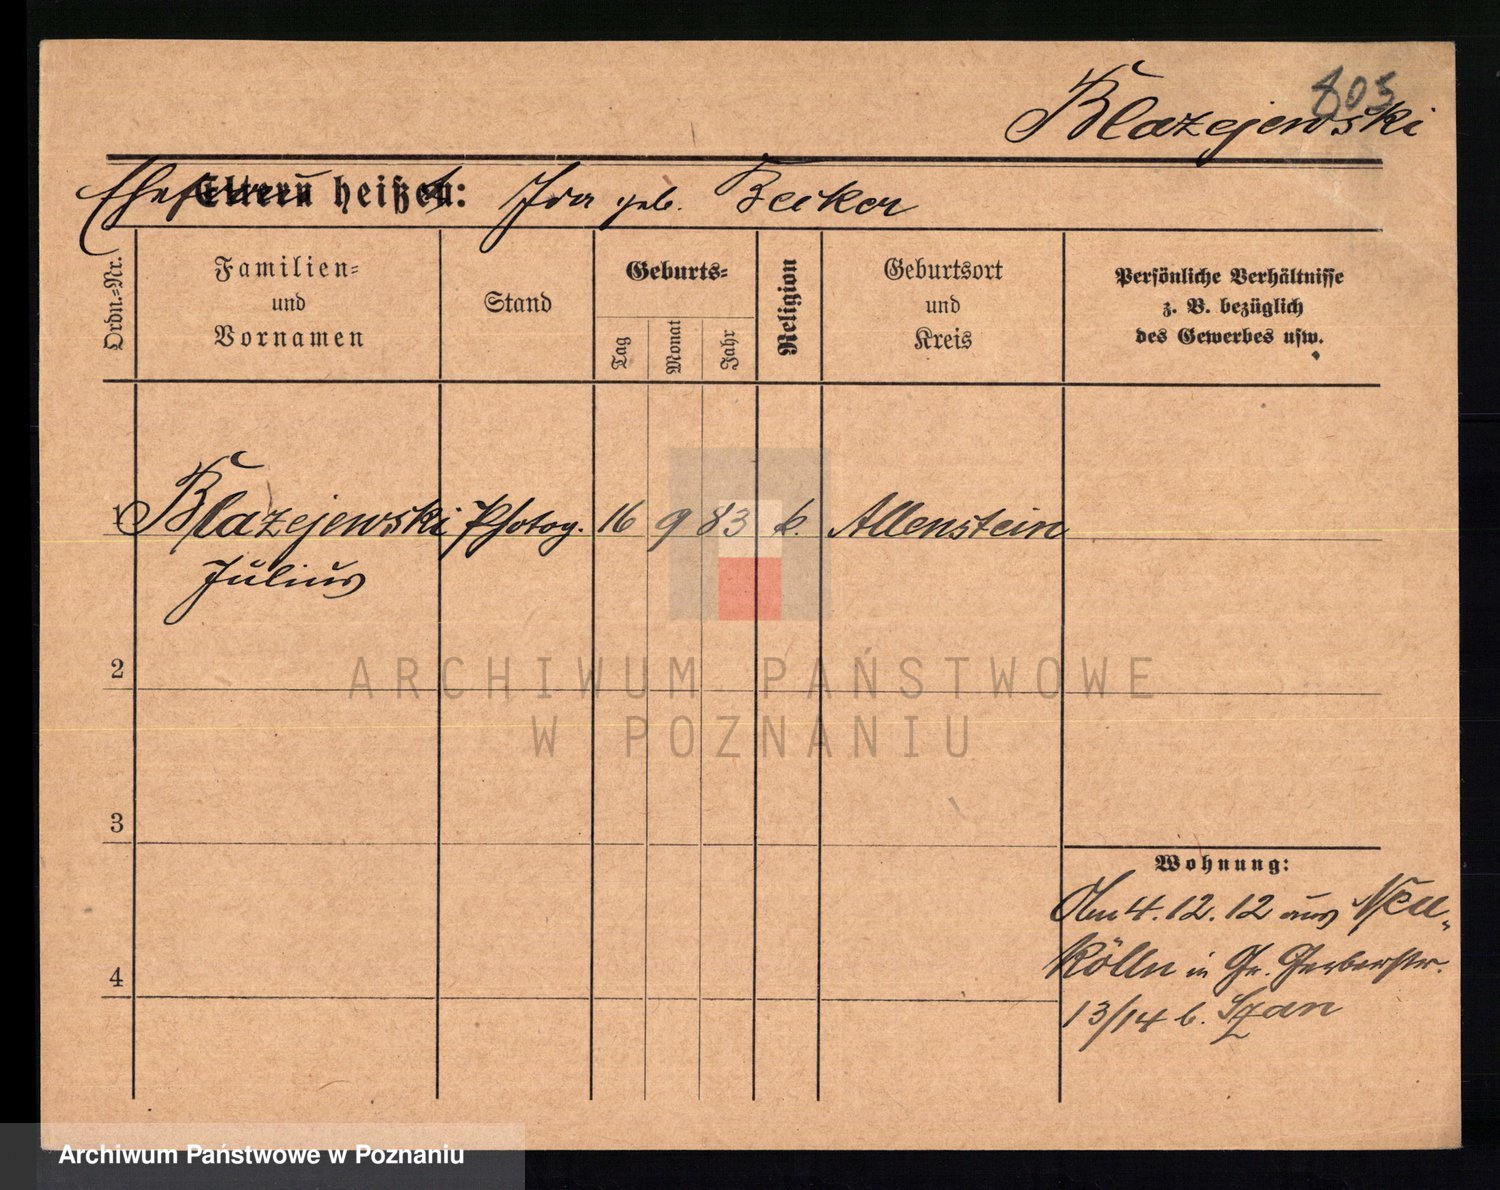 803
Blazejewski
Ehefrau Eltern heißen: Ida geb. Becker
Ordn.=Nr.
Familien=
und
Vornamen
Stand
Geburts=
Tag
Monat
Jahr
Religion
Geburtsort
und
Kreis
Persönliche Verhältnisse
z. B. bezüglich
des Gewerbes usw.
1 Blazejewski Photog. 16 9 83 k. Allenstein
Julius
2
ARCHIWUM PAŃSTWOWE
W POZNANIU
3
Wohnung:
Am 4.12.12 aus Neu-
Kölln in Gr. Gerberstr.
4
13/14 b. Szan
Archiwum Państwowe w Poznaniu